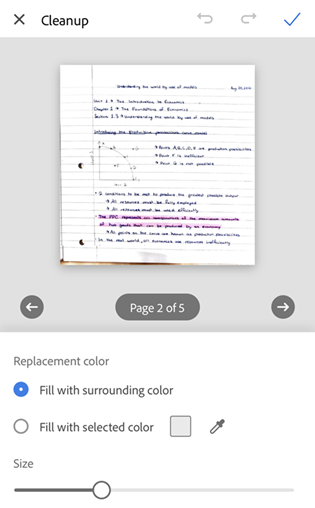 Cleanup
Understanding the world by use of models
Unit 1 • The Introduction to Economics
Chapter 1 • The Foundations of Economics
Section 1.3 • Understanding the world by use of models
Introducing the production possibilities curve model
Points A, B, C, D, E are production possibilities
Point F is inefficient
Point G is not possible
2 conditions to be met to produce the greatest possible output
All resources must be fully employed
All resources must be used efficiently
The PPC represents all combinations of the maximum amounts
of two goods that can be produced by an economy
All points on the curve are known as production possibilities
In the real world, all economies use resources inefficiently
Page 2 of 5
Replacement color
Fill with surrounding color
Fill with selected color
Size